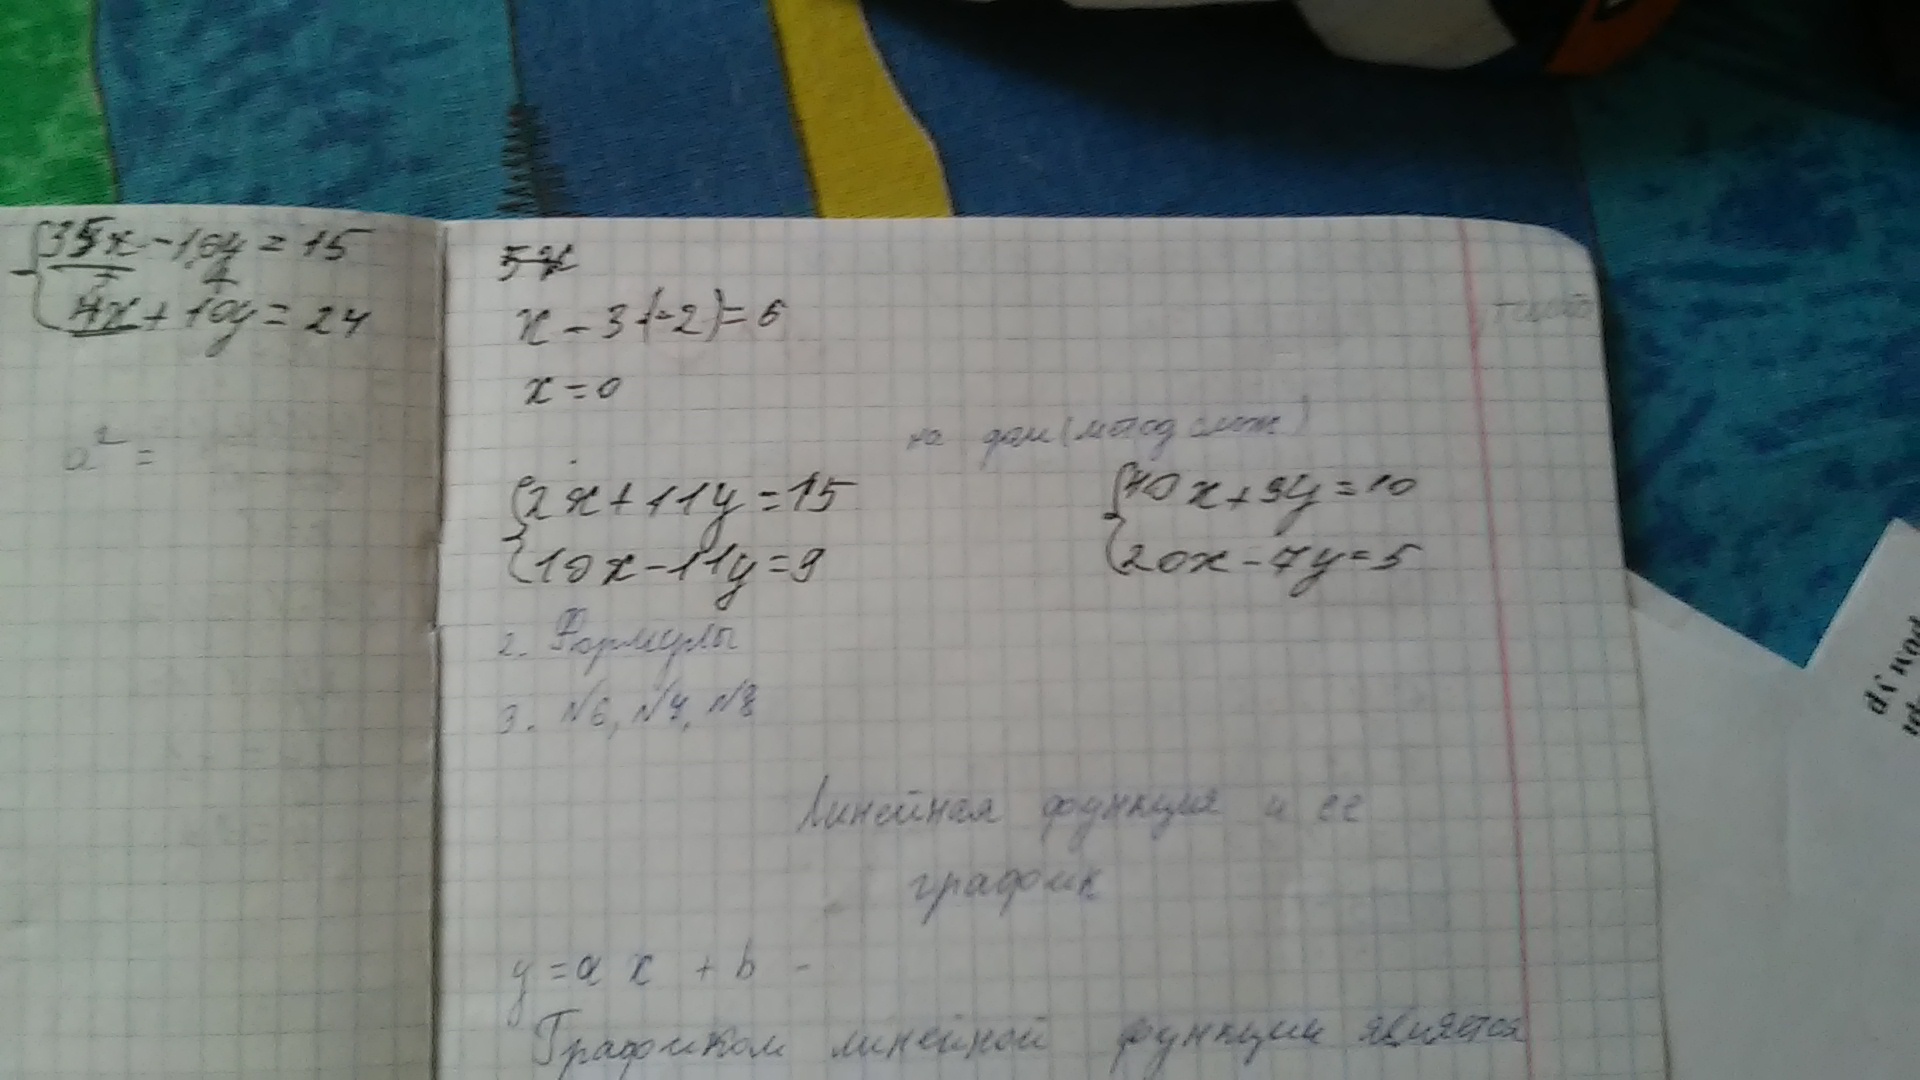 35x - 10y = 15
7x + 10y = 24
a² =
5x
x - 3·(-2) = 6
x = 0
на дом (метод слож)
2x + 11y = 15
10x - 11y = 9
40x + 9y = 10
20x - 7y = 5
2. Формулы
3. №6, №7, №8
Линейная функция и ее
график
y = a x + b -
Графиком линейной функции является